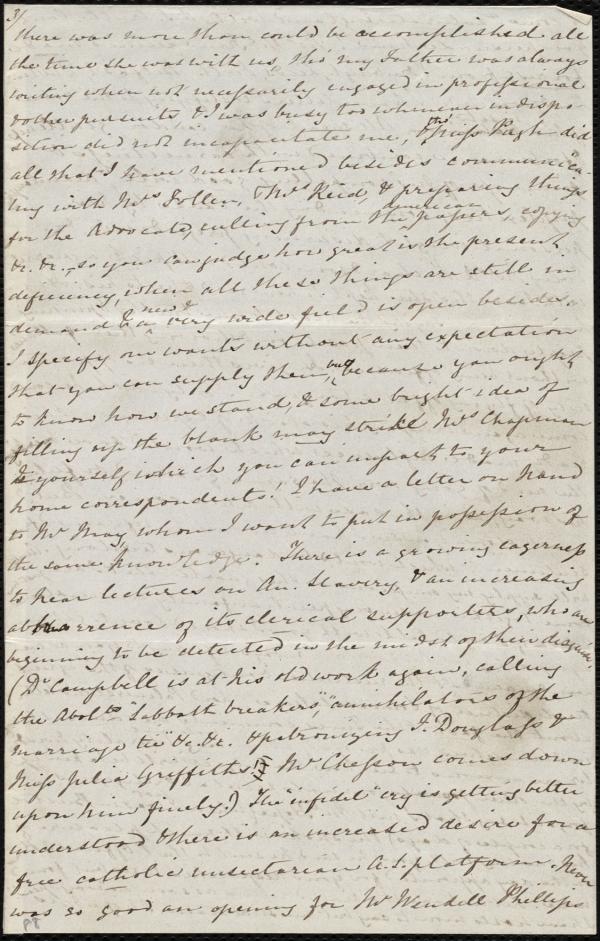 3/
there was more than could be accomplished all
the time she was with us, tho' my Father was always
writing when not necessarily engaged in professional
& other pursuits, & I was busy too whenever indispo-
sition did not incapacitate me, & tho' Miss Pugh did
all that I have mentioned besides communica-
ting with Mrs Follen, Thos Reid, & preparing things
for the Advocate, culling from the american papers, copying
&c. &c., so you can judge how great is the present
deficiency, when all these things are still in
demand & a new & very wide field is open besides.
I specify our wants without any expectation
that you can supply them, but because you ought
to know how we stand, & some bright idea of
filling up the blank may strike Mrs Chapman
& yourself which you can impart to your
home correspondents! I have a letter on hand
to Mr May, whom I want to put in possession of
the same knowledge. There is a growing eagerness
to hear lectures on Am. Slavery, & an increasing
abhorrence of its clerical supporters, who are
beginning to be detected in the midst of their disguise.
(Dr Campbell is at his old work again, calling
the Abolts "Sabbath breakers," "annihilators of the
marriage tie" &c. &c. & patronizing F. Douglass &
Miss Julia Griffiths!! Mr Chesson comes down
upon him finely.) The "infidel" cry is getting better
understood & there is an increased desire for a
free catholic unsectarian A.S. platform. Never
was so good an opening for Mr Wendell Phillips